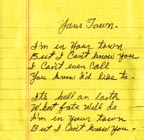 Your Town.
I'm in Your town
But I Can't know You
I Can't even Call
You know I'd like to.
It's hell on earth
What fate will do
I'm in Your town
But I Can't know You.